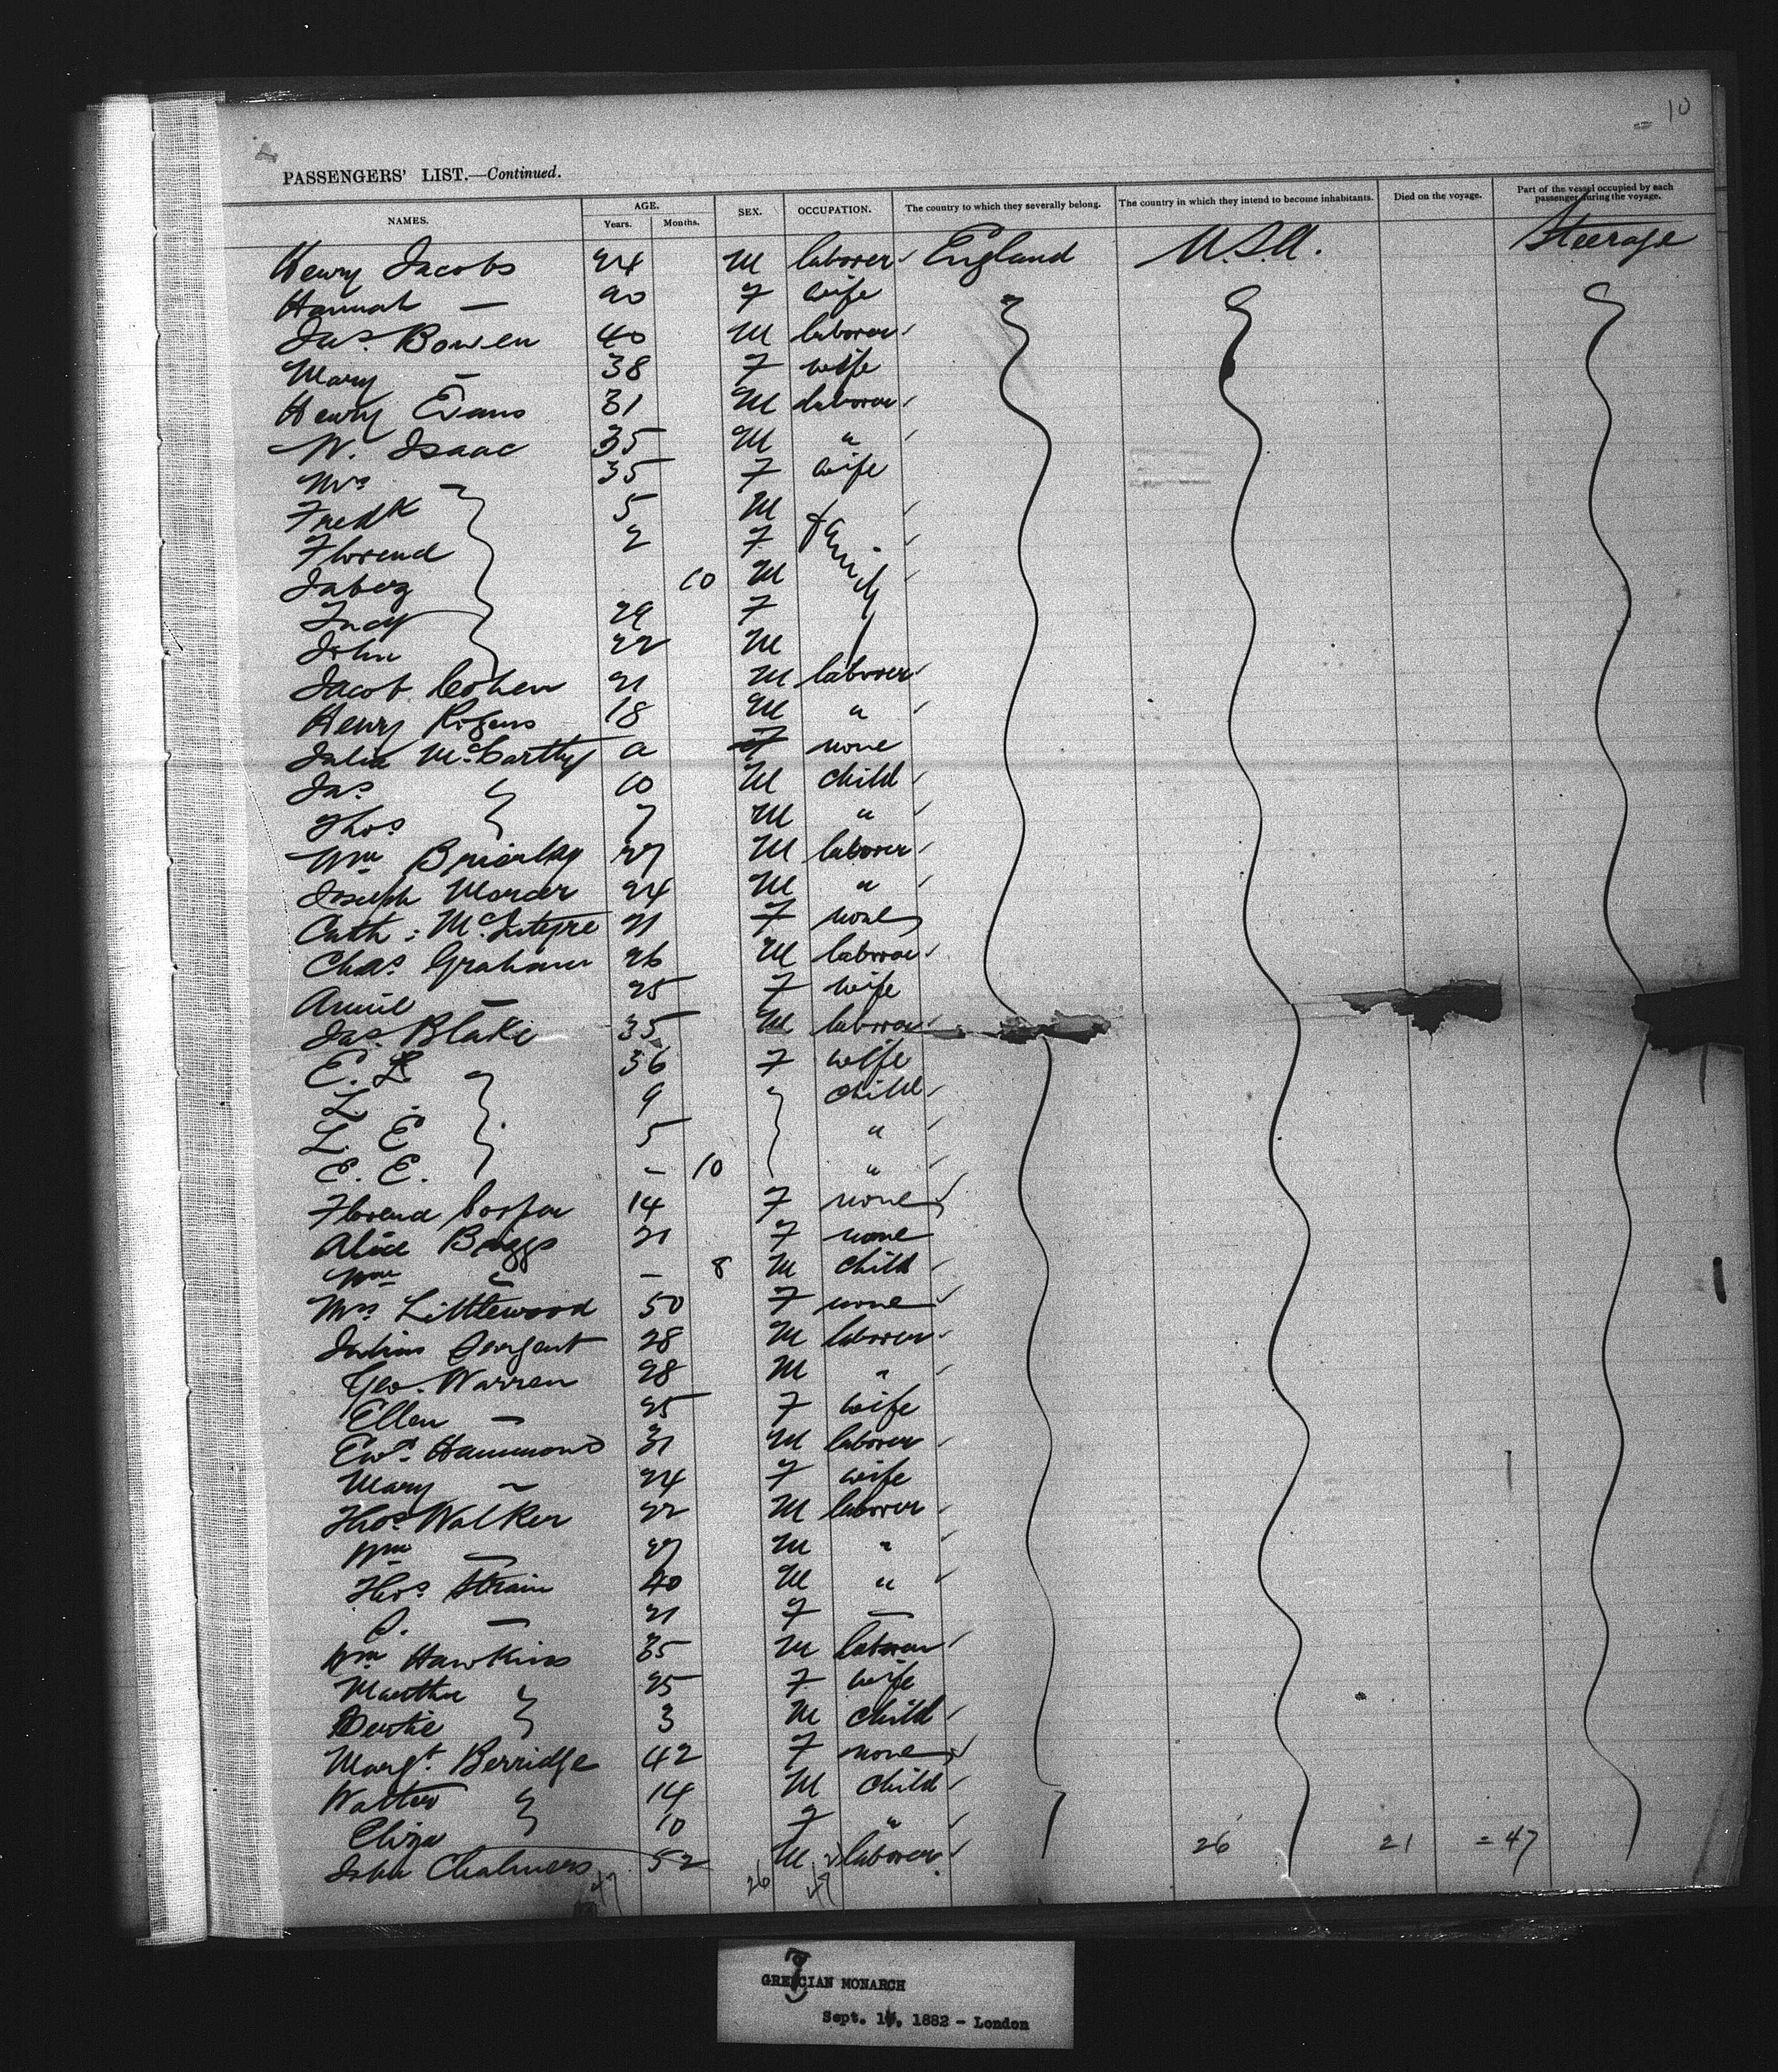 10
PASSENGERS' LIST.—Continued.
NAMES. AGE. Years. Months. SEX. OCCUPATION. The country to which they severally belong. The country in which they intend to become inhabitants. Died on the voyage. Part of the vessel occupied by each passenger during the voyage.
Henry Jacobs 24 M laborer England U.S.A. Steerage
Hannah — 20 F wife
Jas. Bowen 40 M laborer
Mary — 38 F wife
Henry Evans 31 M laborer
W. Isaac 35 M "
Mrs — 35 F wife
Fredk 5 M family
Florence 2 F
Jabez 10 M
Lucy 29 F
John 22 M
Jacob Cohen 21 M laborer
Henry 18 M "
Julia McCarthy F none
Jas 10 M child
Thos 7 M "
Wm Brierley 27 M laborer
Joseph Mercer 24 M "
Cath: McIntyre 21 F none
Chas Graham 26 M laborer
Annie — 25 F wife
Jas. Blake 35 M laborer
E. 36 F wife
L. 9 child
L. E 5 "
E. E. – 10 "
Florence Cooper 14 F none
Alice Baggs 21 F none
Wm – 8 M child
Mrs Littlewood 50 F none
Julius Sergent 28 M laborer
Geo. Warren 28 M "
Ellen — 25 F wife
Ewd Hammond 31 M laborer
Mary — 24 F wife
Thos Walker 22 M laborer
Wm — 27 M "
Thos Strain 40 M "
C. — 21 F —
Wm Hawkins 35 M laborer
Martha 25 F wife
Bertie 3 M child
Margt. Berridge 42 F none
Walter 14 M child
Eliza 10 F "
John Chalmers 52 M laborer 26 21 = 47
47 26
GRECIAN MONARCH
Sept. 1 , 1882 - London